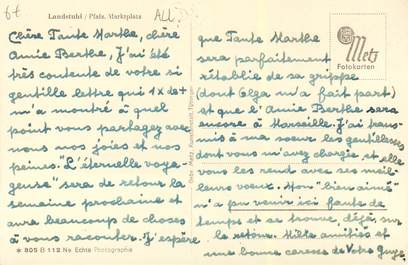 67
Landstuhl / Pfalz. Marktplatz
ALL.
Chère Tante Marthe, chère
Amie Berthe, J'ai été
très contente de votre si
gentille lettre qui 1 x de +
m'a montré à quel
point vous partagez avec
nous nos joies et nos
peines. "L'éternelle voya-
geuse" sera de retour la
semaine prochaine et
aura beaucoup de choses
à vous raconter. J'espère
* 805 B 112 Ne Echte Photographie
Gebr. Metz, Kunstanstalt, Tübingen
Metz
Fotokarten
que Tante Marthe
sera parfaitement
rétablie de sa grippe
(dont Olga m'a fait part)
et que l'Amie Berthe sera
encore à Marseille. J'ai trans-
mis à ma sœur les gentillesses
dont vous m'aviez chargée et elle
vous les rend avec ses meil-
leurs voeux. Mon "bien aimé"
n'a pu venir ici faute de
temps et se trouve, déjà, sur
le retour. Mille amitiés et
une bonne caresse de Votre